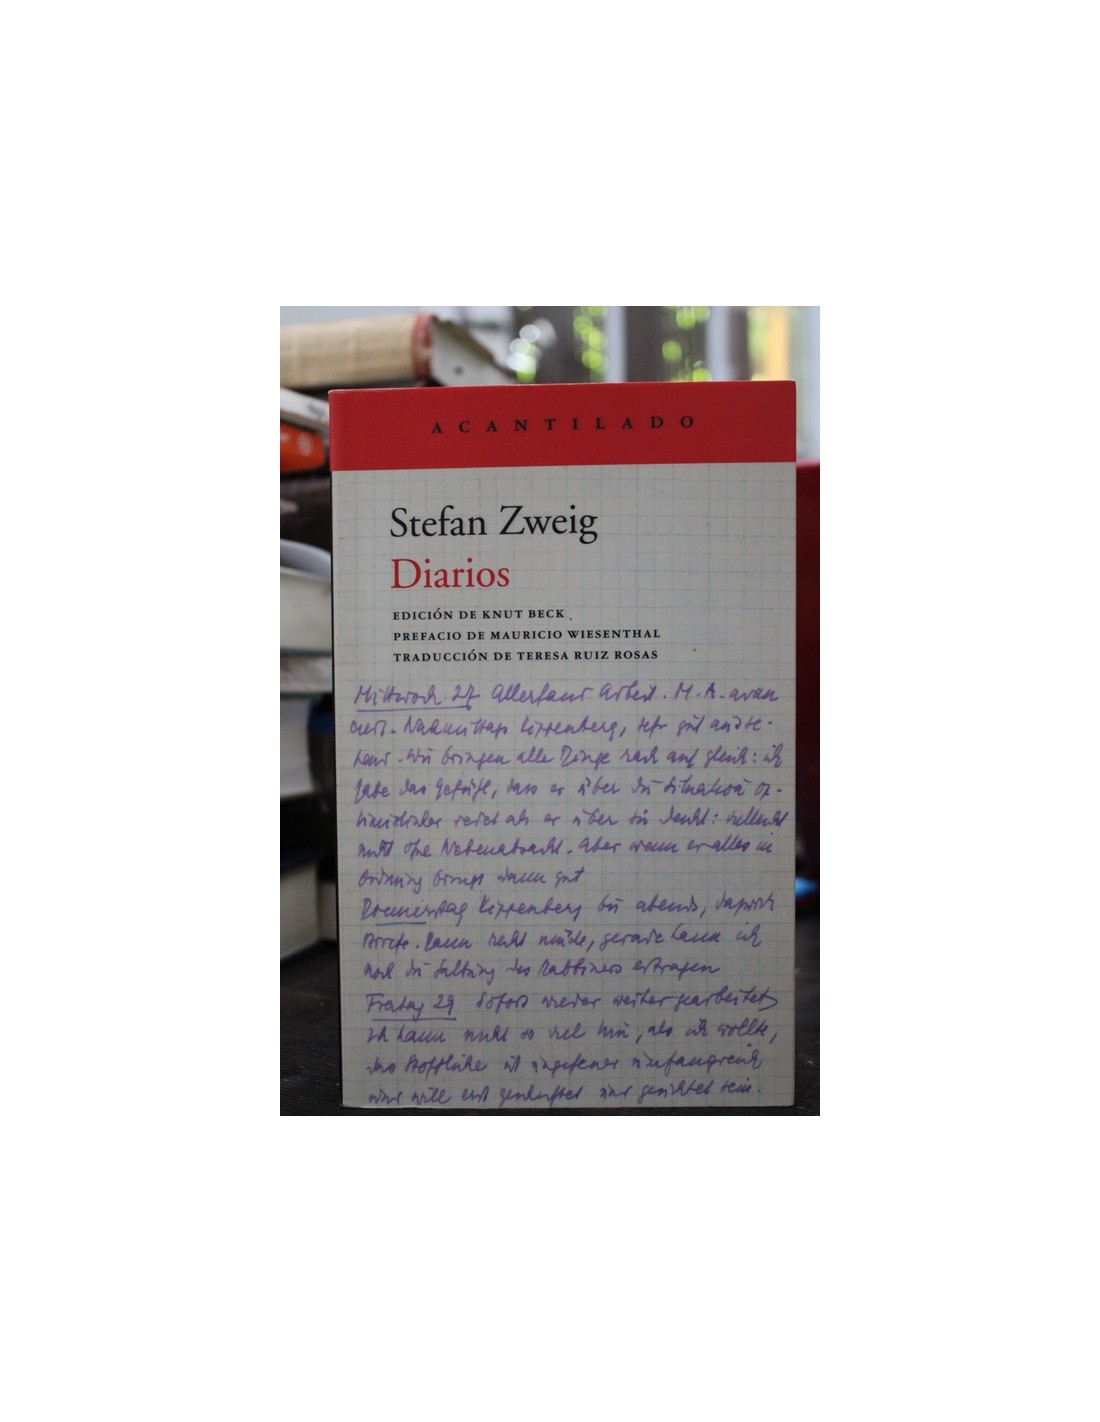 ACANTILADO
Stefan Zweig
Diarios
EDICIÓN DE KNUT BECK
PREFACIO DE MAURICIO WIESENTHAL
TRADUCCIÓN DE TERESA RUIZ ROSAS
Mittwoch 27 Allerhand Arbeit. M. A. avan
ciert. Nachmittags Kippenberg, sehr gut
wir bringen alle Dinge rasch auf gleich: ich
habe das Gefühl, dass er über die Situation op-
timistischer redet als er über sie denkt: vielleicht
nicht ohne Nebenabsicht. Aber wenn er alles in
Ordnung bringt dann gut
Donnerstag Kippenberg bis abends,
Briefe. Dann recht müde, gerade kann ich
noch die des Rabbiners ertragen
Freitag 29 Sofort wieder weiter gearbeitet,
ich kann nicht so viel tun, als ich wollte,
das Stoffliche ist ungeheuer umfangreich
und will erst und gesichtet sein.